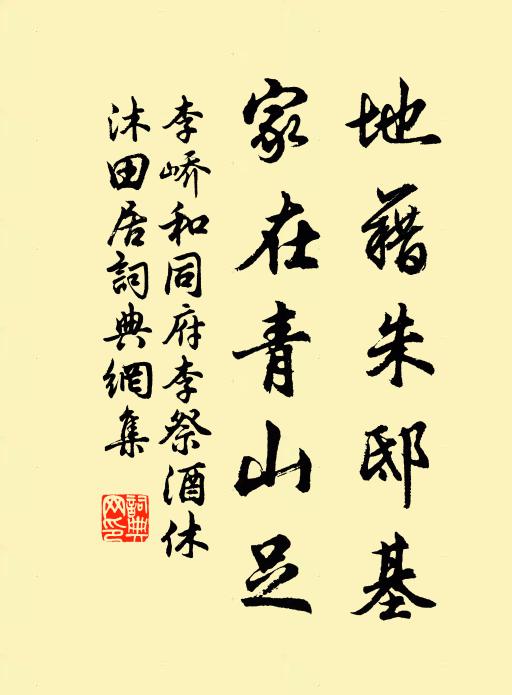 地藉朱邸基
家在青山足
李峤和同府李祭酒休
沐田居詞典網集
詞典網印